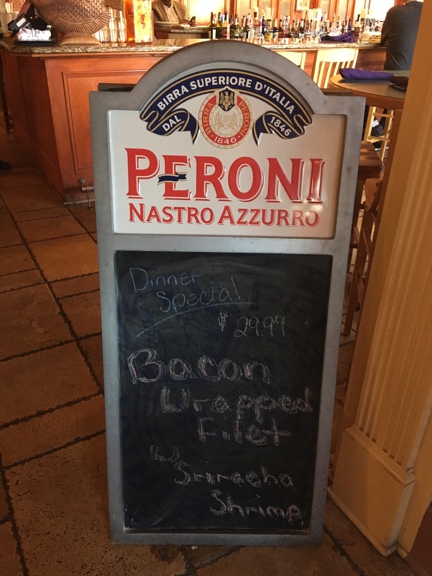 BIRRA SUPERIORE D'ITALIA
DAL 1846
PERONI
NASTRO AZZURRO
Dinner
Special
$ 29.99
Bacon
Wrapped
Filet
w/
Sriracha
Shrimp